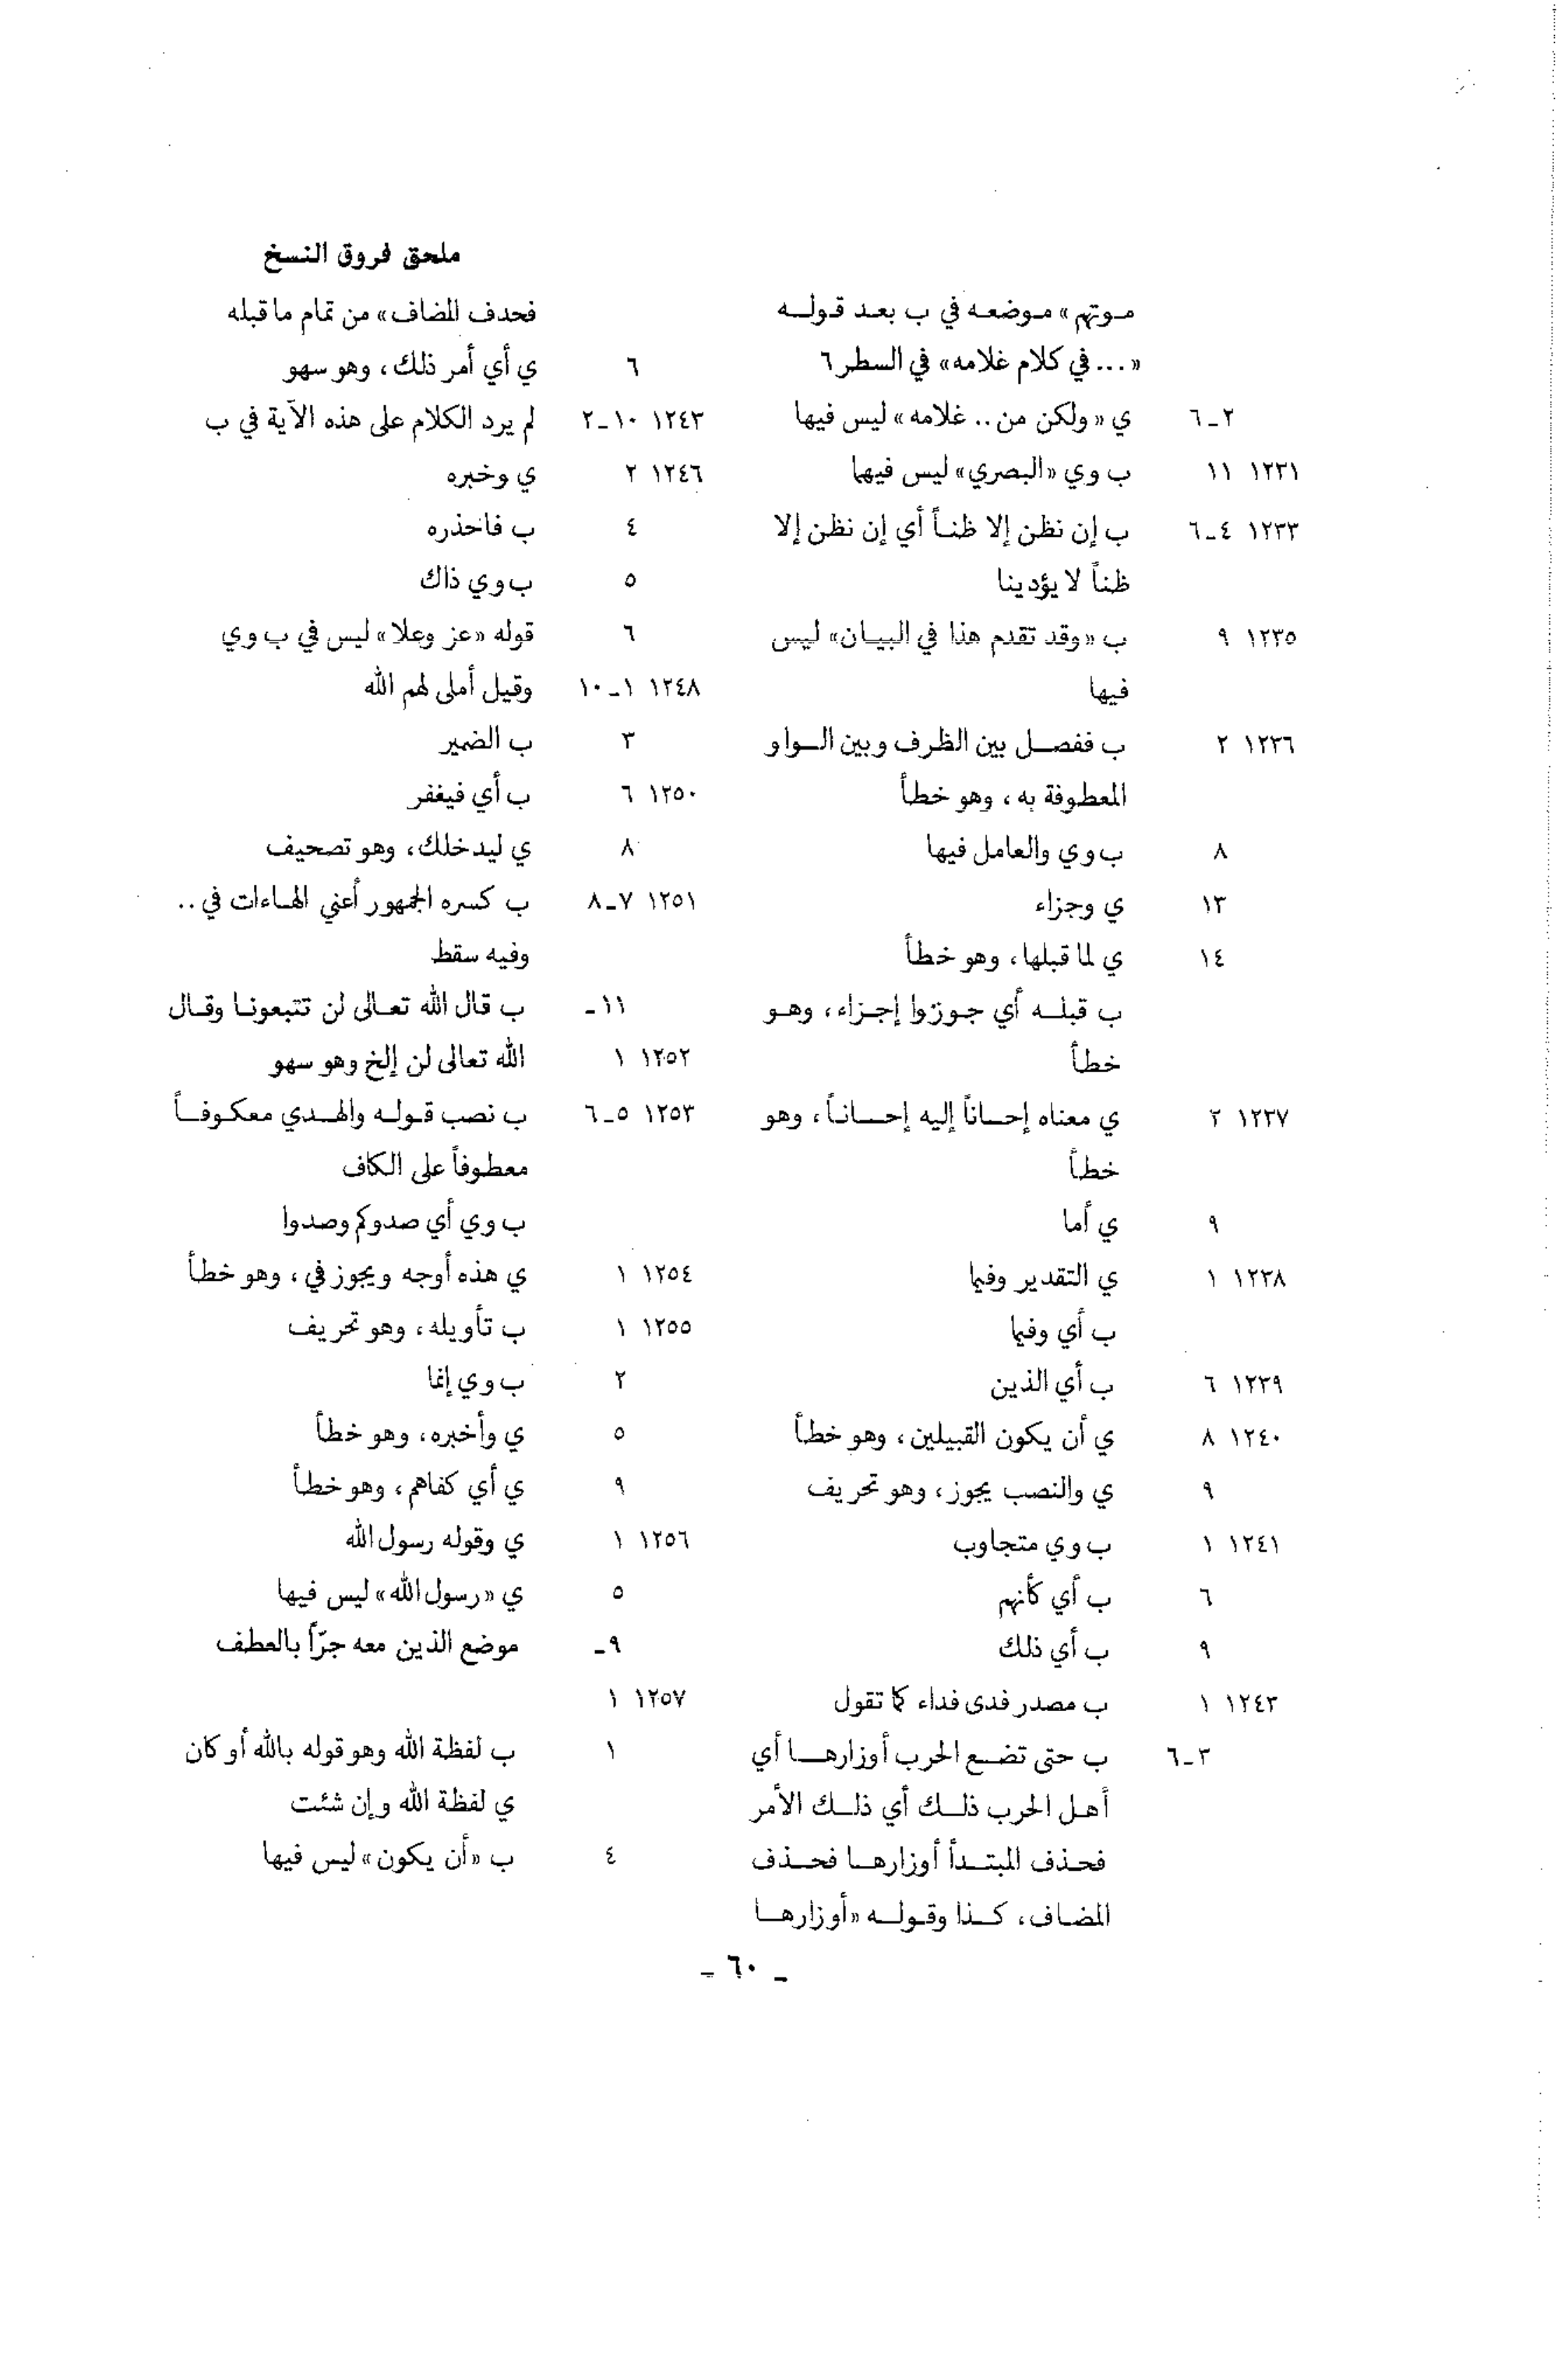 ملحق فروق النسخ
مـوتهم» مـوضعـه في ب بعـد قـولـــه
«... في كلام غلامه» في السطر ٦
٢ـ٦ ي «ولكن من.. غلامه» ليس فيها
١٢٣١ ١١ ب وي «البصري» ليس فيها
١٢٣٣ ٤ـ٦ ب إن نظن إلا ظنـاً أي إن نظن إلا
ظناً لا يؤدينا
١٢٣٥ ٩ ب «وقد تقدم هذا في البيـان» ليس
فيها
١٢٣٦ ٢ ب ففصـــل بين الظرف وبين الـــواو
المعطوفة به، وهو خطأ
٨ ب وي والعامل فيها
١٣ ي وجزاء
١٤ ي لما قبلها، وهو خطأ
ب قبلـــه أي جـوزوا إجـزاء، وهـو
خطأ
١٢٣٧ ٢ ي معناه إحساناً إليه إحســانـاً، وهو
خطأ
٩ ي أما
١٢٣٨ ١ ي التقدير وفيما
ب أي وفيما
١٢٣٩ ٦ ب أي الذين
١٢٤٠ ٨ ي أن يكون القبيلين، وهو خطأ
٩ ي والنصب يجوز، وهو تحريف
١٢٤١ ١ ب وي متجاوب
٦ ب أي كأنهم
٩ ب أي ذلك
١٢٤٣ ١ ب مصدر فدى فداء كما تقول
٣ـ٦ ب حتى تضـــع الحرب أوزارهـــا أي
أهـل الحرب ذلـــك أي ذلـــك الأمر
فحـذف المبتـــدأ أوزارهـــا فحـــذف
المضـاف، كـــذا وقـولـــه «أوزارهـــا
فحدف المضاف» من تمام ما قبله
٦ ي أي أمر ذلك، وهو سهو
١٢٤٣ ١٠ـ٢ لم يرد الكلام على هذه الآية في ب
١٢٤٦ ٢ ي وخبره
٤ ب فاحذره
٥ ب وي ذاك
٦ قوله «عز وعلا» ليس في ب وي
١٢٤٨ ١ـ١٠ وقيل أملى لهم الله
٣ ب الضمير
١٢٥٠ ٦ ب أي فيغفر
٨ ي ليدخلك، وهو تصحيف
١٢٥١ ٧ـ٨ ب كسره الجمهور أعني الهـاءات في..
وفيه سقط
١١ـ ب قال الله تعـالى لن تتبعونـا وقـال
١٢٥٢ ١ الله تعالى لن إلخ وهو سهو
١٢٥٣ ٥ـ٦ ب نصب قـولـه والهـــدي معكـوفـــاً
معطوفاً على الكاف
ب وي أي صدوكم وصدوا
١٢٥٤ ١ ي هذه أوجه ويجوز في، وهو خطأ
١٢٥٥ ١ ب تأويله، وهو تحريف
٢ ب وي إنما
٥ ي وأخبره، وهو خطأ
٩ ي أي كفاهم، وهو خطأ
١٢٥٦ ١ ي وقوله رسول الله
٥ ي «رسول الله» ليس فيها
٩ـ موضع الذين معه جرّاً بالعطف
١٢٥٧ ١
١ ب لفظة الله وهو قوله بالله أو كان
ي لفظة الله وإن شئت
٤ ب «أن يكون» ليس فيها
ـ ٦٠ ـ